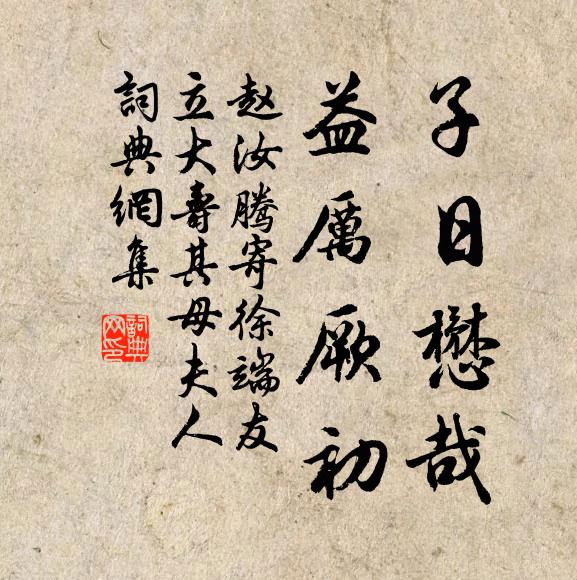 子日懋哉
益厲厥初
赵汝腾寄徐端友
立大壽其母夫人
詞典網集
詞典
网印